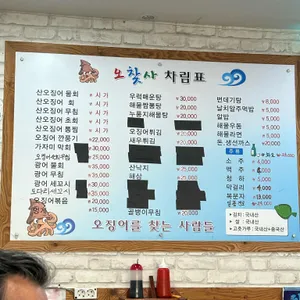 오찾사 차림표
산오징어 물회 ₩ 시가
산오징어 회 ₩ 시가
산오징어 무침 ₩ 시가
산오징어 초회 ₩ 시가
산오징어 통찜 ₩ 시가
오징어 깐풍기 ₩22,000
가자미 막회 ₩30,000
광어 물회
광어 무침 ₩35,000
광어 세꼬시 ₩30,000
도다리세꼬시
오징어볶음
₩25,000
우럭매운탕 ₩30,000
해물짬뽕탕 ₩20,000
누룽지해물탕
오징어튀김
새우튀김
산낙지
해삼
골뱅이무침 ₩20,000
번데기탕 ₩8,000
날치알주먹밥 ₩5,000
알밥 ₩5,000
해물우동 ₩5,000
해물라면 ₩5,000
돈.생선까스 ₩20,000
소주 ₩4,000
맥주 ₩4,000
청하 ₩5,000
막걸리 ₩4,000
복분자
김치 : 국내산
쌀 : 국내산
고춧가루 : 국내산+중국산
오징어를 찾는 사람들